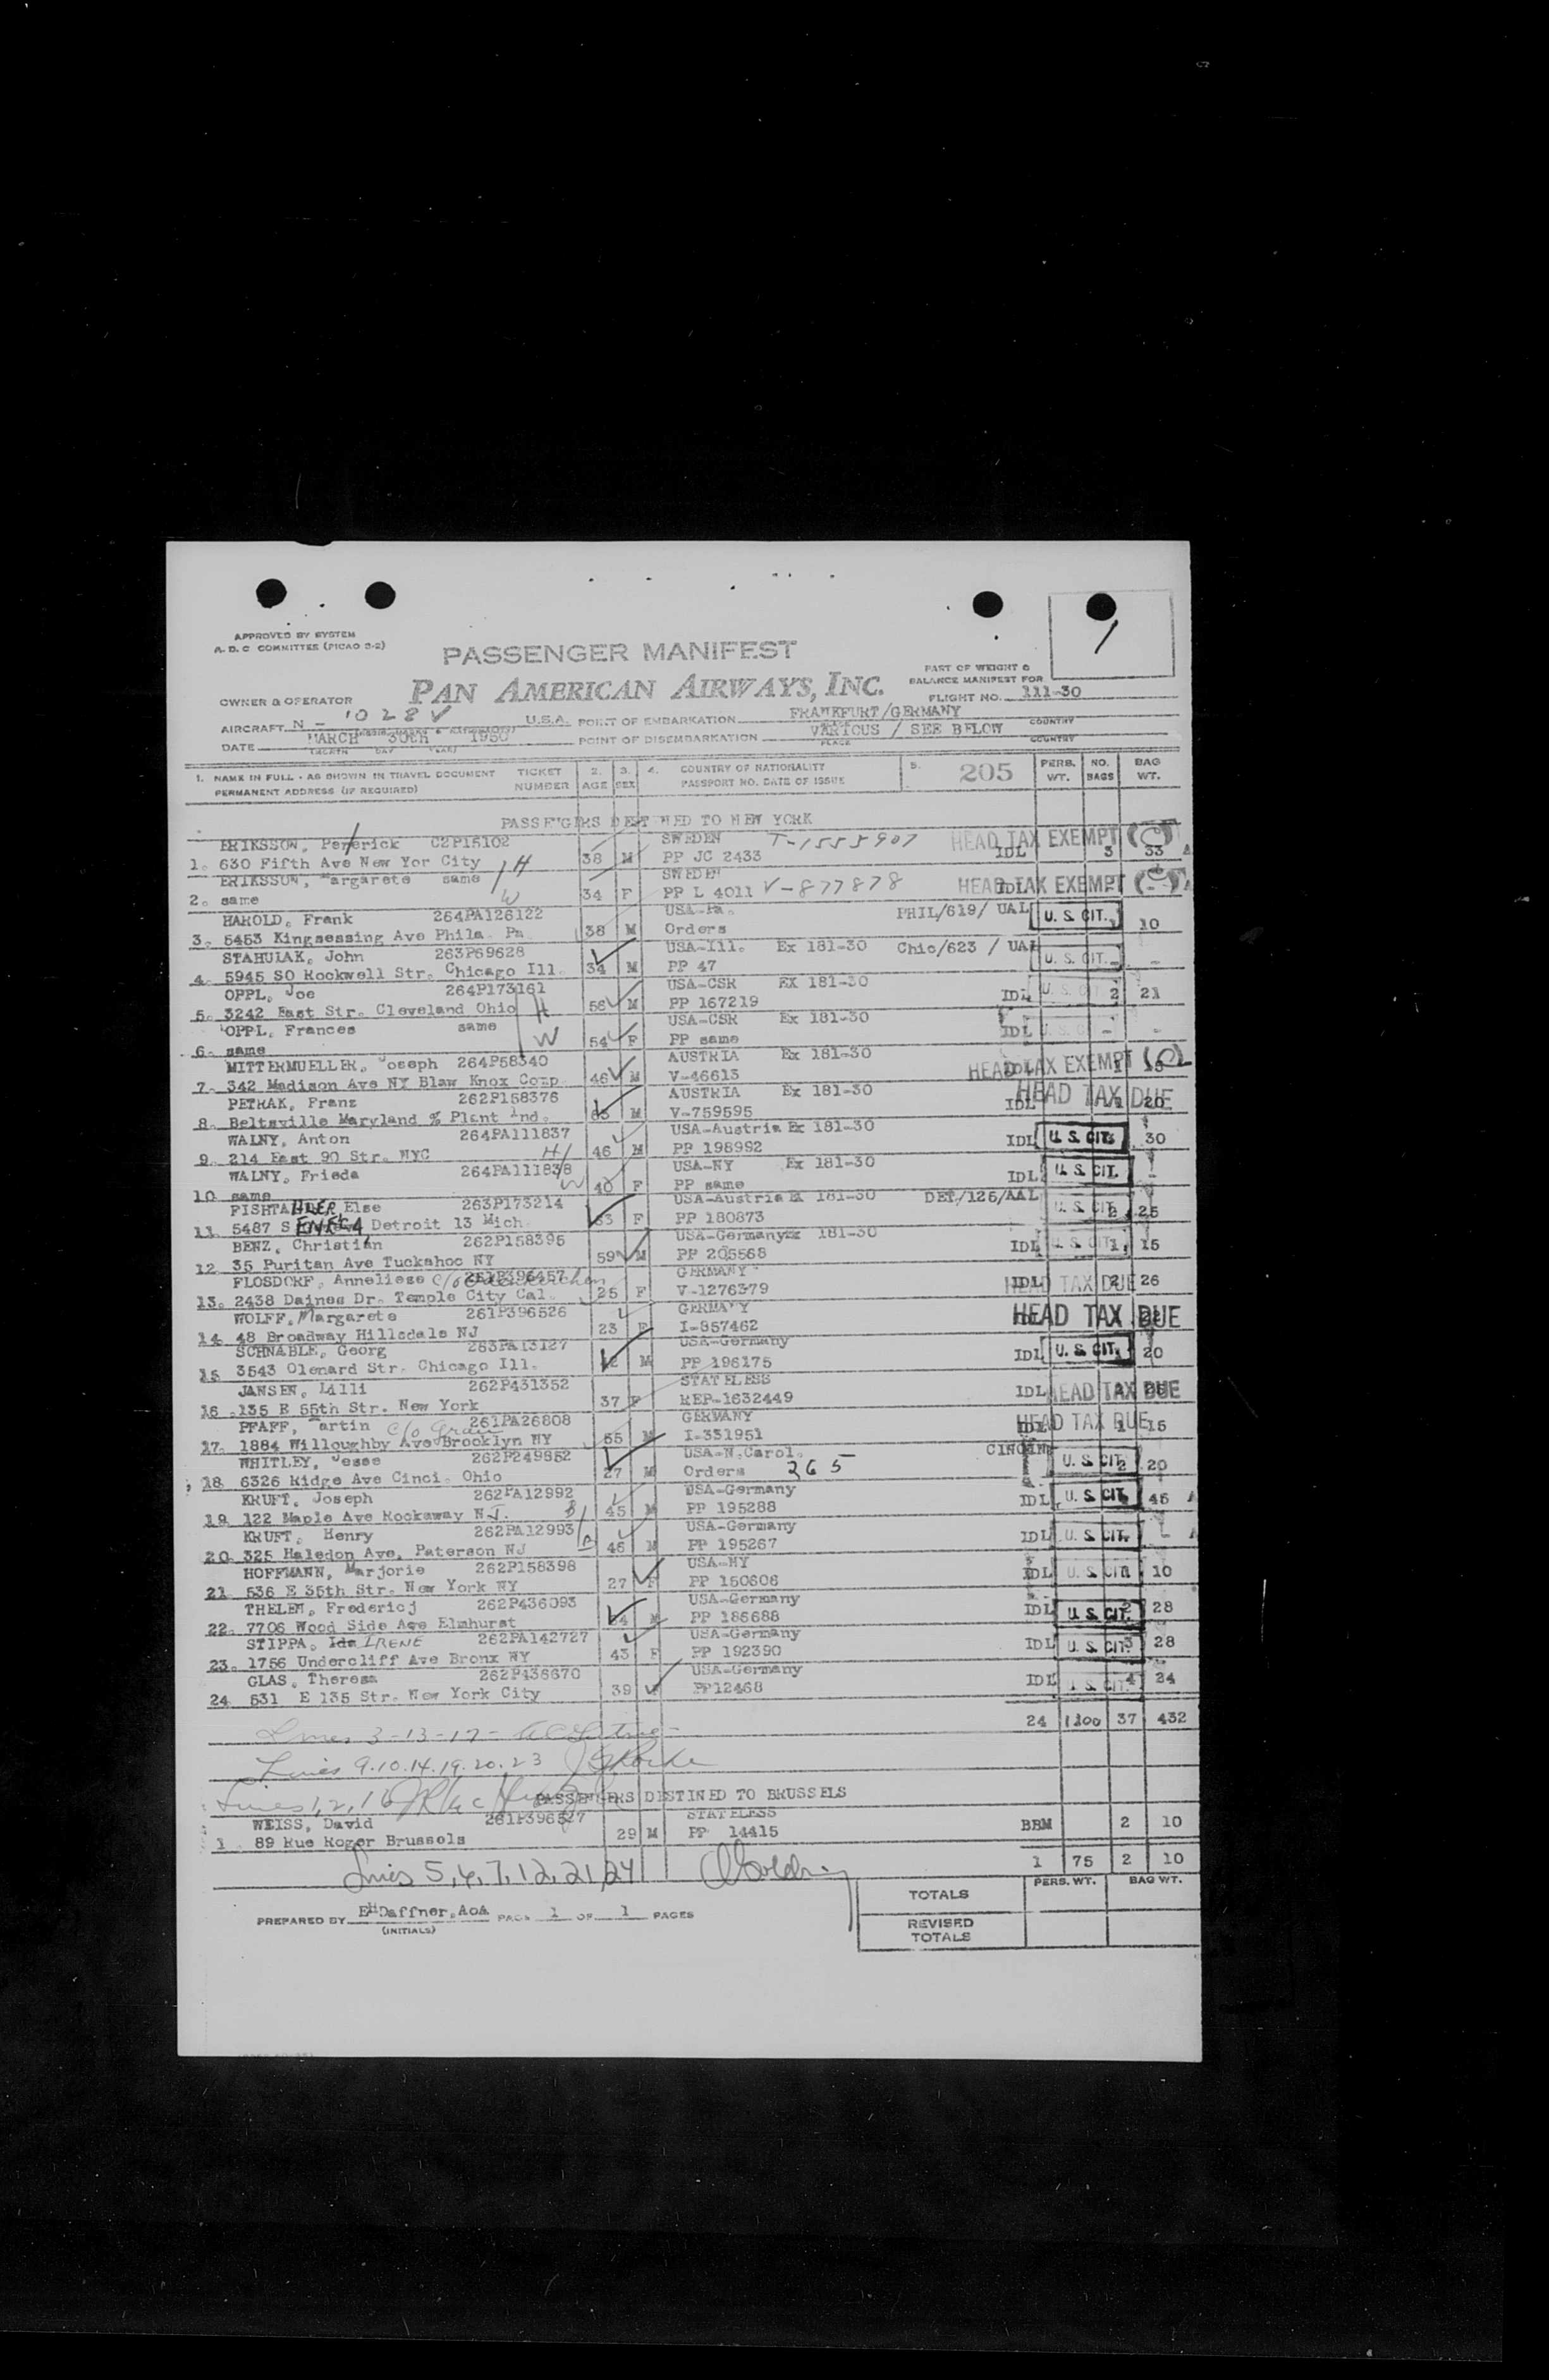 APPROVED BY SYSTEM
A. D. C COMMITTEE (PICAO 3-2)
PASSENGER MANIFEST
PAN AMERICAN AIRWAYS, INC.
PART OF WEIGHT &
BALANCE MANIFEST FOR
FLIGHT NO. 111-30
OWNER & OPERATOR
AIRCRAFT N - 1028V U.S.A. POINT OF EMBARKATION FRANKFURT/GERMANY
DATE MARCH 30th 1950 POINT OF DISEMBARKATION VARIOUS / SEE BELOW
(MONTH DAY YEAR) PLACE COUNTRY
1. NAME IN FULL - AS SHOWN IN TRAVEL DOCUMENT TICKET 2. 3. 4. COUNTRY OF NATIONALITY 5. 205 PERS. NO. BAG
PERMANENT ADDRESS (IF REQUIRED) NUMBER AGE SEX PASSPORT NO. DATE OF ISSUE WT. BAGS WT.
PASSENGERS DESTINED TO NEW YORK
ERIKSSON, Pererick C2P15102 SWEDEN T-1555907 HEAD TAX EXEMPT
1. 630 Fifth Ave New Yor City H 38 M PP JC 2433 IDL 3 33
ERIKSSON, Margarete same SWEDEN
2. same W 34 F PP L 4011 V-877878 HEAD TAX EXEMPT
HAROLD, Frank 264PA126122 USA-Pa. PHIL/619/ UAL U. S. CIT.
3. 5453 Kingsessing Ave Phila. Pa. 38 M Orders 10
STAHULAK, John 263P69628 USA-Ill. Ex 181-30 Chic/623 / UAL
4. 5945 SO Rockwell Str. Chicago Ill. 34 M PP 47 U. S. CIT. - -
OPPL, Joe 264P173161 USA-CSR EX 181-30
5. 3242 East Str. Cleveland Ohio H 56 M PP 167219 IDL U. S. CIT 2 21
OPPL, Frances same USA-CSR Ex 181-30
6. same W 54 F PP same IDL U. S. C - -
MITTERMUELLER, Joseph 264P58340 AUSTRIA Ex 181-30
7. 342 Madison Ave NY Blaw Knox Comp. 46 M V-46613 HEAD TAX EXEMPT
PETRAK, Franz 262P158376 AUSTRIA Ex 181-30 HEAD TAX DUE
8. Beltsville Maryland % Plant Ind. M V-759595 IDL 20
WALNY, Anton 264PA111837 USA-Austria Ex 181-30
9. 214 East 90 Str. NYC H 46 M PP 198992 IDL U. S. CIT. 30
WALNY, Frieda 264PA111838 USA-NY Ex 181-30
10 same W 40 F PP same IDL U. S. CIT. -
FISHTAHLER, Else 263P173214 USA-Austria Ex 181-30 DET/126/AAL
11. 5487 SENECA Detroit 13 Mich F PP 180873 U. S. CIT 2 25
BENZ, Christian 262P158395 USA-Germany 181-30
12 35 Puritan Ave Tuckahoe NY 59 M PP 205568 IDL U. S. CIT 1 15
FLOSDORF, Anneliese c/o 261P396457 GERMANY
13. 2438 Daines Dr. Temple City Cal. 25 F V-1276379 IDL HEAD TAX DUE 26
WOLFF, Margarete 261P396526 GERMANY
14 48 Broadway Hillsdale NJ 23 F I-857462 HEAD TAX DUE
SCHNABLE, Georg 263PA13127 USA-Germany
15 3543 Olenard Str. Chicago Ill. M PP 196175 IDL U. S. CIT. 20
JANSEN, Lilli 262P431352 STATELESS
16 135 E 55th Str. New York 37 F REP-1632449 IDL HEAD TAX DUE
PFAFF, Martin c/o 261PA26808 GERMANY
17. 1884 Willoughby Ave Brooklyn NY 55 M I-331951 HEAD TAX DUE 15
WHITLEY, Jesse 262P249852 USA-N.Carol.
18 6326 Ridge Ave Cinci. Ohio 27 M Orders 265 U. S. CIT 2 20
KRUFT, Joseph 262PA12992 USA-Germany
19 122 Maple Ave Rockaway N.J. B 45 M PP 195288 IDL U. S. CIT. 45
KRUFT, Henry 262PA12993 USA-Germany
20. 325 Haledon Ave, Paterson NJ B 46 M PP 195267 IDL U. S. CIT. -
HOFFMANN, Marjorie 262P158398 USA-NY
21 536 E 35th Str. New York NY 27 F PP 150606 IDL U. S. CIT 10
THELEM, Fredericj 262P436093 USA-Germany
22. 7706 Wood Side Ave Elmhurst M PP 186688 IDL U. S. CIT. 2 28
STIPPA, Ida IRENE 262PA142727 USA-Germany
23. 1756 Undercliff Ave Bronx NY 43 F PP 192390 IDL U. S. CIT. 3 28
GLAS, Theresa 262P436670 USA-Germany
24 531 E 135 Str. New York City 39 PP12468 IDL U. S. CIT. 4 24
24 1800 37 432
Lines 3-13-17-
Lines 9.10.14.19.20.23
Lines 1,2,16
PASSENGERS DESTINED TO BRUSSELS
WEISS, David 261P396527 STATELESS
1. 89 Rue Roger Brussels 29 M PP 14415 BBM 2 10
Lines 5,6,7,12,21,24
1 75 2 10
PERS. WT. BAG WT.
TOTALS
REVISED
TOTALS
PREPARED BY EHDaffner, AOA PAGE 1 OF 1 PAGES
(INITIALS)